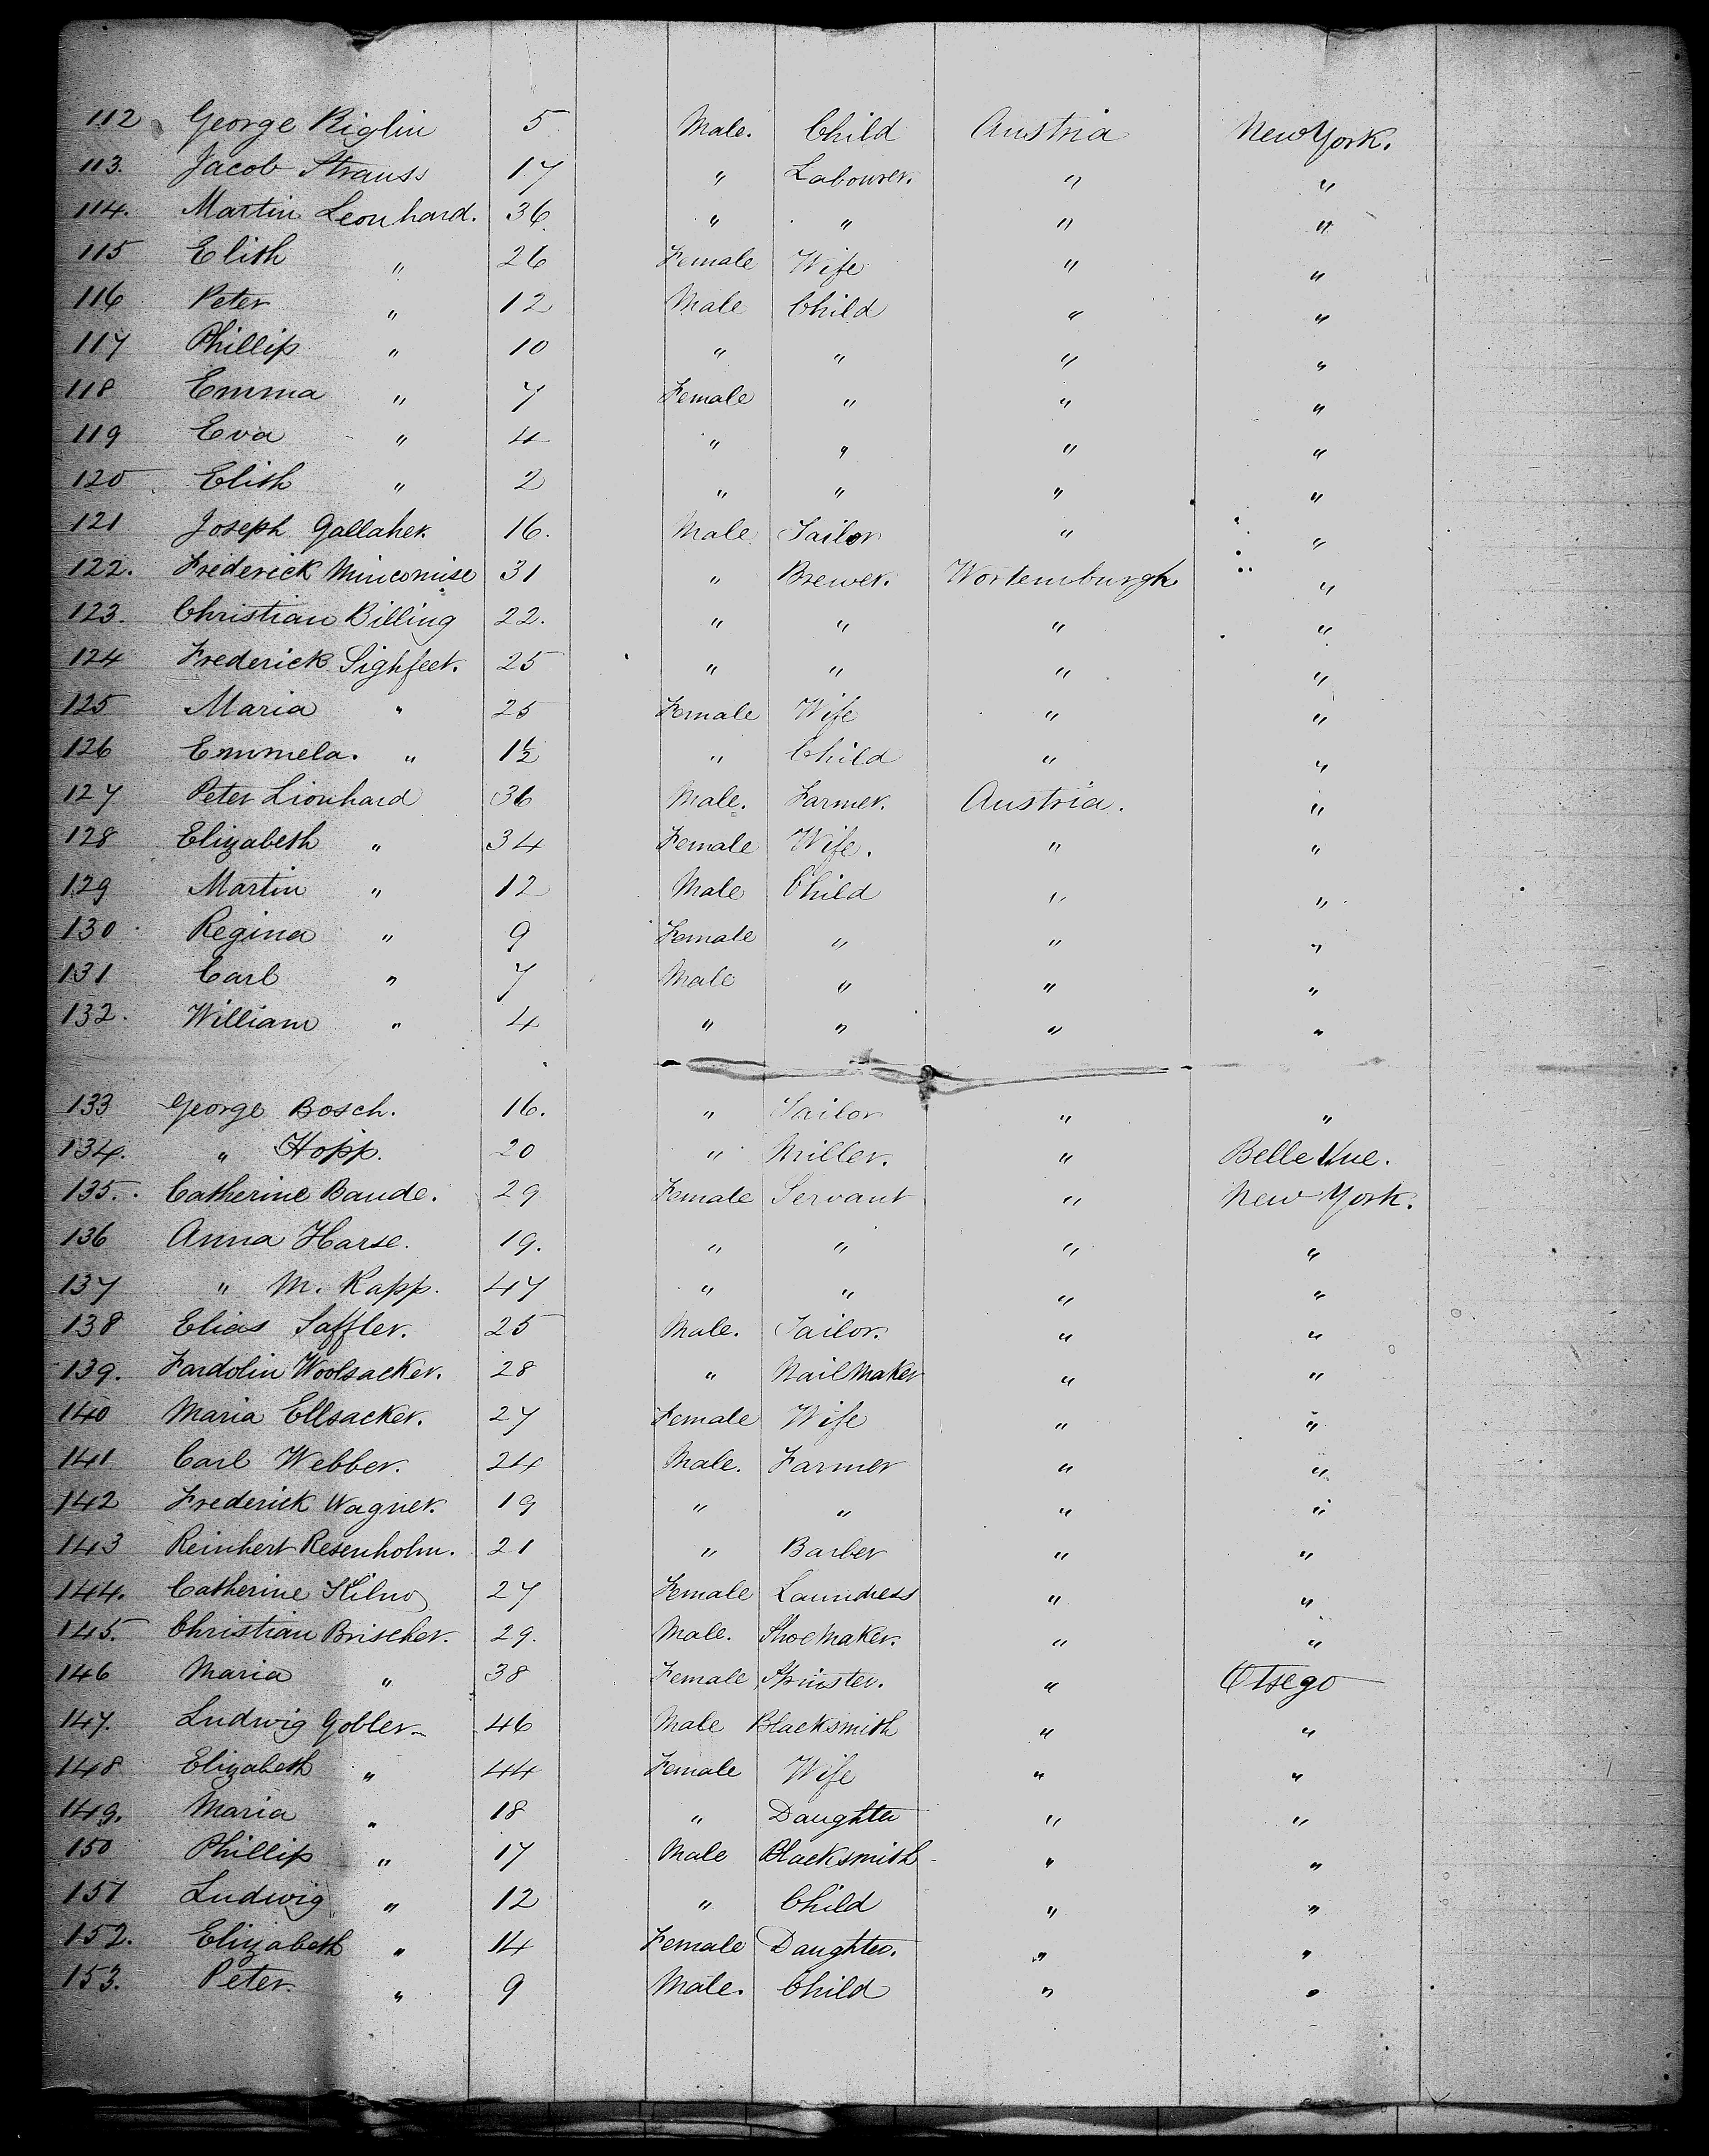 112 George Riglin 5 Male. Child Austria New York.
113. Jacob Strauss 17 " Labourer. " "
114. Martin Leonhard. 36 " " " "
115 Elith " 26 Female Wife " "
116 Peter " 12 Male Child " "
117 Phillip " 10 " " " "
118 Emma " 7 Female " " "
119 Eva " 4 " " " "
120 Elith " 2 " " " "
121 Joseph Gallaher. 16. Male Tailor " "
122. Frederick Minicomise 31 " Brewer. Wortemburgh "
123. Christian Billing 22. " " " "
124 Frederick Sighfeet. 25 " " " "
125 Maria " 25 Female Wife " "
126 Emmela. " 1½ " Child " "
127 Peter Lionhard 36 Male. Farmer. Austria. "
128 Elizabeth " 34 Female Wife. " "
129 Martin " 12 Male Child " "
130 Regina " 9 Female " " "
131 Carl " 7 Male " " "
132. William " 4 " " " "
133 George Bosch. 16. " Tailor " "
134. " Hopp. 20 " Miller. " Belle Vue.
135. Catherine Baude. 29 Female Servant " New York.
136 Anna Harse. 19. " " " "
137 " M. Kapp. 47 " " " "
138 Elias Saffler. 25 Male. Tailor. " "
139. Fardolin Woolsacker. 28 " Nail Maker " "
140 Maria Ellsacker. 27 Female Wife " "
141 Carl Webber. 24 Male. Farmer " "
142 Frederick Wagner. 19 " " " "
143 Reinhert Resenholm. 21 " Barber " "
144. Catherine 27 Female Laundress " "
145. Christian Brischer. 29. Male. Shoe Maker. " "
146 Maria " 38 Female Spinster. " Otsego
147. Ludwig Gobler 46 Male Blacksmith " "
148 Elizabeth " 44 Female Wife " "
149. Maria " 18 " Daughter " "
150 Phillip " 17 Male Blacksmith " "
151 Ludwig " 12 " Child " "
152. Elizabeth " 14 Female Daughter. " "
153. Peter. " 9 Male. Child " "